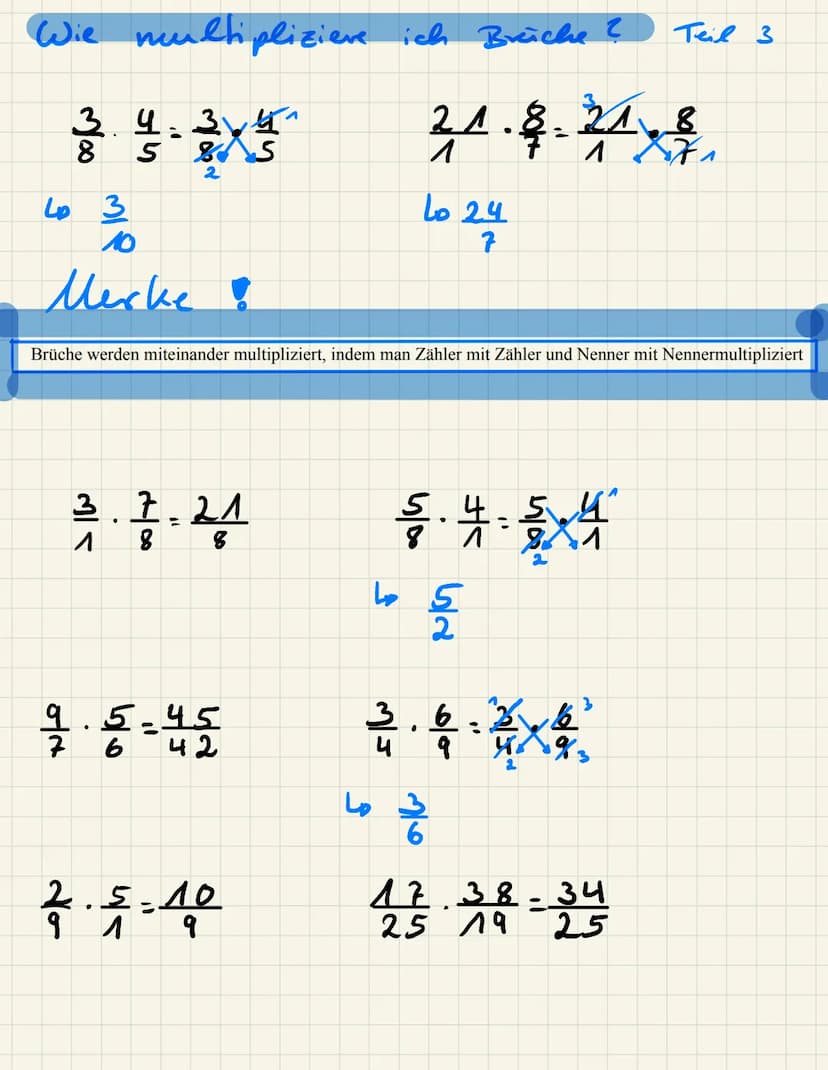 Wie multipliziere ich Brüche? Teil 3
3/8 · 4/5 = 3/8 · 4/5 1 2
21/1 · 8/7 = 21/1 · 8/7 3 1
↳ 3/10
↳ 24/7
Merke !
Brüche werden miteinander multipliziert, indem man Zähler mit Zähler und Nenner mit Nennermultipliziert
3/1 · 7/8 = 21/8
5/8 · 4/1 = 5/8 · 4/1 1 2
↳ 5/2
9/7 · 5/6 = 45/42
3/4 · 6/9 = 3/4 · 6/9 1 3 2 3
↳ 3/6
2/9 · 5/1 = 10/9
17/25 · 38/19 = 34/25